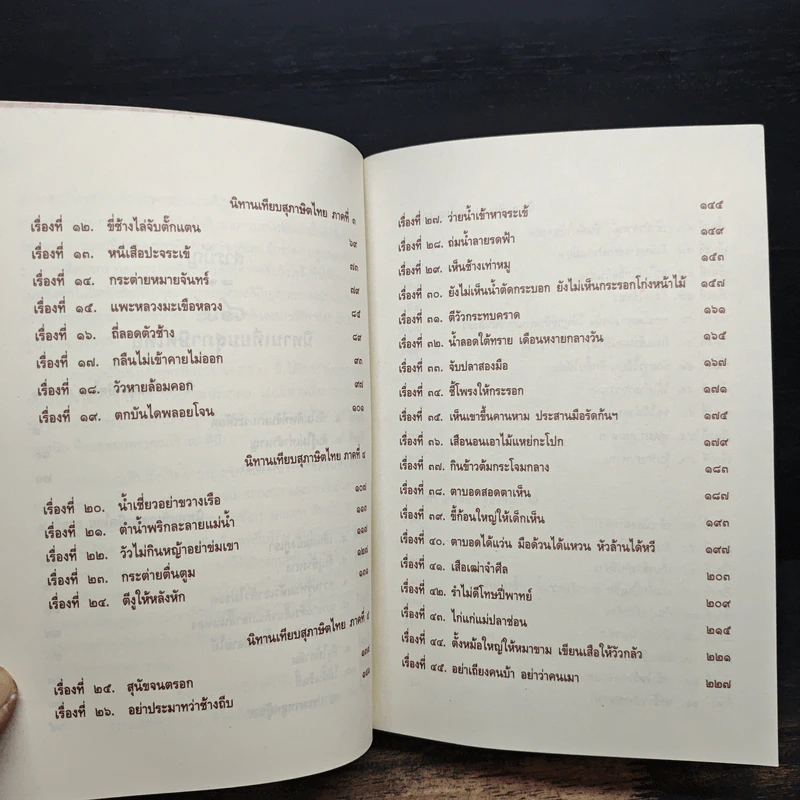 นิทานเทียบสุภาษิตไทย ภาคที่ ๓
เรื่องที่ ๑๒. ขี่ช้างไล่จับตั๊กแตน ๖๙
เรื่องที่ ๑๓. หนีเสือปะจระเข้ ๗๓
เรื่องที่ ๑๔. กระต่ายหมายจันทร์ ๗๙
เรื่องที่ ๑๕. แพะหลวงมะเขือหลวง ๘๕
เรื่องที่ ๑๖. ถี่ลอดตัวช้าง ๘๙
เรื่องที่ ๑๗. กลืนไม่เข้าคายไม่ออก ๙๓
เรื่องที่ ๑๘. วัวหายล้อมคอก ๙๗
เรื่องที่ ๑๙. ตกบันไดพลอยโจน ๑๐๑
นิทานเทียบสุภาษิตไทย ภาคที่ ๔
เรื่องที่ ๒๐. น้ำเชี่ยวอย่าขวางเรือ
เรื่องที่ ๒๑. ตำน้ำพริกละลายแม่น้ำ
เรื่องที่ ๒๒. วัวไม่กินหญ้าอย่าข่มเขา
เรื่องที่ ๒๓. กระต่ายตื่นตูม
เรื่องที่ ๒๔. ตีงูให้หลังหัก
นิทานเทียบสุภาษิตไทย ภาคที่ ๕
เรื่องที่ ๒๕. สุนัขจนตรอก
เรื่องที่ ๒๖. อย่าประมาทว่าช้างถีบ
เรื่องที่ ๒๗. ว่ายน้ำเข้าหาจระเข้ ๑๔๕
เรื่องที่ ๒๘. ถ่มน้ำลายรดฟ้า ๑๔๙
เรื่องที่ ๒๙. เห็นช้างเท่าหมู ๑๕๓
เรื่องที่ ๓๐. ยังไม่เห็นน้ำตัดกระบอก ยังไม่เห็นกระรอกโก่งหน้าไม้ ๑๕๗
เรื่องที่ ๓๑. ตีวัวกระทบคราด ๑๖๑
เรื่องที่ ๓๒. น้ำลอดใต้ทราย เดือนหงายกลางวัน ๑๖๕
เรื่องที่ ๓๓. จับปลาสองมือ ๑๖๗
เรื่องที่ ๓๔. ชี้โพรงให้กระรอก ๑๗๑
เรื่องที่ ๓๕. เห็นเขาขึ้นคานหาม ประสานมือรัดก้นฯ ๑๗๕
เรื่องที่ ๓๖. เสือนอนเอาไม้แหย่กะโปก ๑๗๙
เรื่องที่ ๓๗. กินข้าวต้มกระโจมกลาง ๑๘๓
เรื่องที่ ๓๘. ตาบอดสอดตาเห็น ๑๘๗
เรื่องที่ ๓๙. ขี้ก้อนใหญ่ให้เด็กเห็น ๑๙๓
เรื่องที่ ๔๐. ตาบอดได้แว่น มือด้วนได้แหวน หัวล้านได้หวี ๑๙๗
เรื่องที่ ๔๑. เสือเฒ่าจำศีล ๒๐๓
เรื่องที่ ๔๒. รำไม่ดีโทษปี่พาทย์ ๒๐๙
เรื่องที่ ๔๓. ไก่แก่แม่ปลาช่อน ๒๑๕
เรื่องที่ ๔๔. ตั้งหม้อใหญ่ให้หมาขาม เขียนเสือให้วัวกลัว ๒๒๑
เรื่องที่ ๔๕. อย่าเถียงคนบ้า อย่าว่าคนเมา ๒๒๗